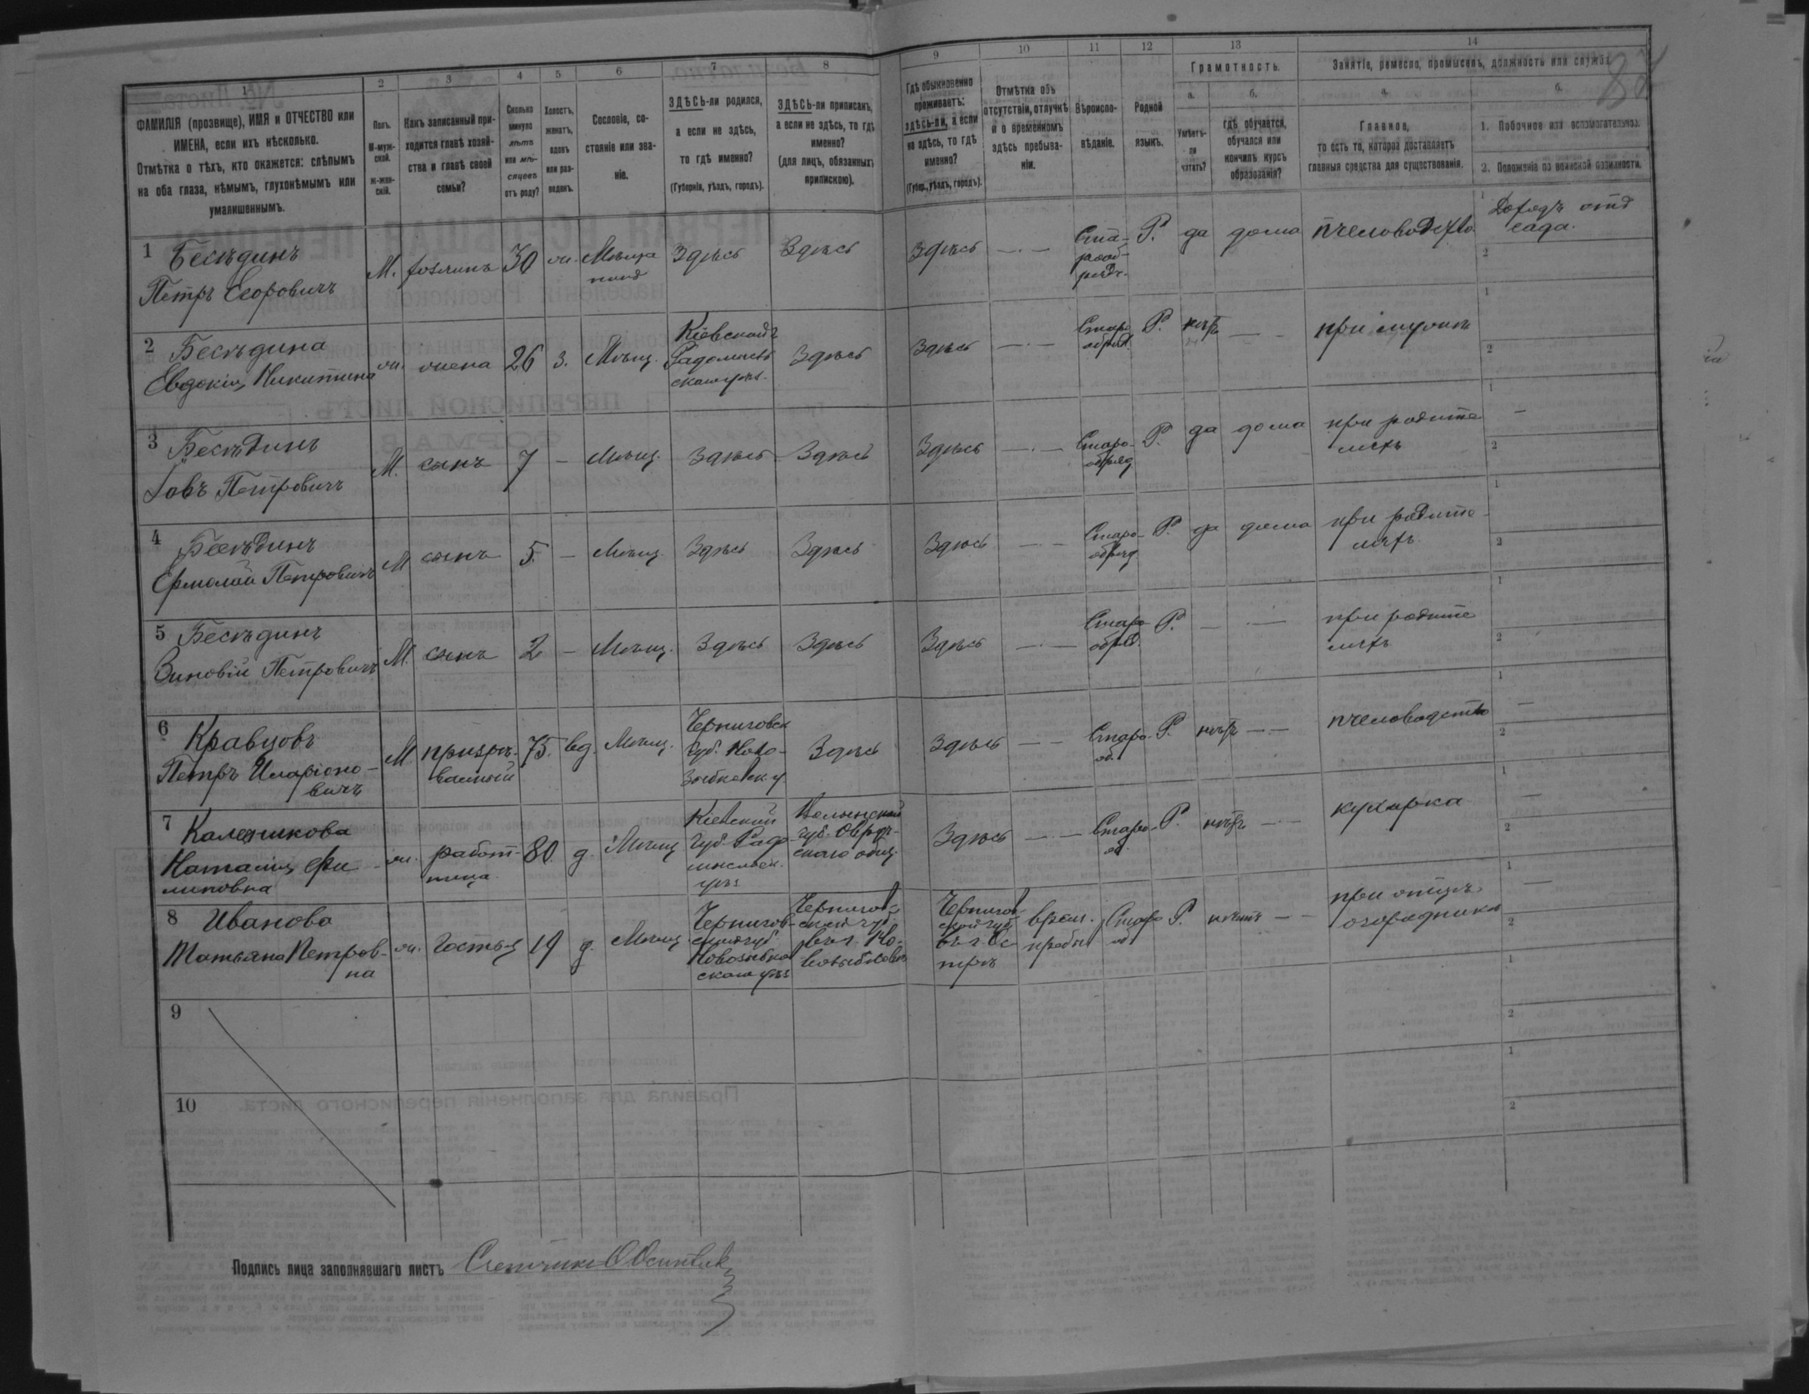 1
2
3
4
5
6
7
8
9
10
11
12
13
14
Грамотность.
Занятіе, ремесло, промыселъ, должность или служба.
а.
б.
а.
б.
ФАМИЛІЯ (прозвище), ИМЯ и ОТЧЕСТВО или
ИМЕНА, если ихъ нѣсколько.
Отмѣтка о тѣхъ, кто окажется: слѣпымъ
на оба глаза, нѣмымъ, глухонѣмымъ или
умалишеннымъ.
Полъ.
М-муж-
ской.
Ж-жен-
скій.
Какъ записанный при-
ходится главѣ хозяй-
ства и главѣ своей
семьи?
Сколько
минуло
лѣтъ
или мѣ-
сяцевъ
отъ роду?
Холостъ,
женатъ,
вдовъ
или раз-
веденъ.
Сословіе, со-
стояніе или зва-
ніе.
ЗДѢСЬ-ли родился,
а если не здѣсь,
то гдѣ именно?
(Губернія, уѣздъ, городъ).
ЗДѢСЬ-ли приписанъ,
а если не здѣсь, то гдѣ
именно?
(для лицъ, обязанныхъ
припискою).
Гдѣ обыкновенно
проживаетъ:
здѣсь-ли, а если
не здѣсь, то гдѣ
именно?
(Губер., уѣздъ, городъ).
Отмѣтка объ
отсутствіи, отлучкѣ
и о временномъ
здѣсь пребыва-
ніи.
Вѣроиспо-
вѣданіе.
Родной
языкъ.
Умѣетъ-
ли
читать?
гдѣ обучается,
обучался или
кончилъ курсъ
образованія?
Главное,
то есть то, которое доставляетъ
главныя средства для существованія.
1. Побочное или вспомогательное.
2. Положеніе по воинской повинности.
1 Бесѣдинъ
Петръ Егоровичъ
М. хозяинъ 30 ж. Мѣща
нинъ
Здѣсь Здѣсь Здѣсь
Р. да дома пчеловодство
1 Доходъ отъ
сада.
2
2 Бесѣдина
Евдокія Никитина
ж. жена 26 з. Мѣщ.
Кіевской г
скаго уѣз.
Здѣсь Здѣсь
Старо
обряд.
Р. нѣтъ при мужѣ
1
2
3 Бесѣдинъ
Іовъ Петровичъ
М. сынъ 7 – Мѣщ. Здѣсь Здѣсь Здѣсь
Старо-
обряд
Р. да дома при родите
ляхъ
1 —
2
4 Бесѣдинъ
Ермолай Петровичъ
М сынъ 5. – Мѣщ. Здѣсь Здѣсь Здѣсь
Старо-
обряд
Р. да дома при родите-
ляхъ
1
2
5 Бесѣдинъ
Зиновій Петровичъ
М. сынъ 2 – Мѣщ. Здѣсь Здѣсь Здѣсь
Старо
обряд.
Р. — — при родите
ляхъ
1
2
6 Кравцовъ
Петръ Иларіоно-
вичъ
М призрѣ-
ваемый
75. вд. Мѣщ.
Черниговск
губ. Ново-
Здѣсь Здѣсь
Старо-
об.
Р. нѣтъ — пчеловодство
1 —
2
7
Наталія Фи
липовна
ж. работ-
ница
80 д. Мѣщ
Кіевский
губ. Радо
уѣз
Волынской
губ.
скаго общ.
Здѣсь
Старо-
об
Р. нѣтъ — кухарка
1 —
2
8 Иванова
Татьяна Петров-
на
ж. Гостья 19 д. Мѣщ
Чернигов-
ской губ.
скаго уѣз
Чернигов
ской губ
въ г. Но-
Чернигов
ской губ
врем.
Старо
об
Р. нѣтъ — при отцѣ
огородника
1 —
2
9
1
2
10
1
2
Подпись лица заполнявшаго листъ